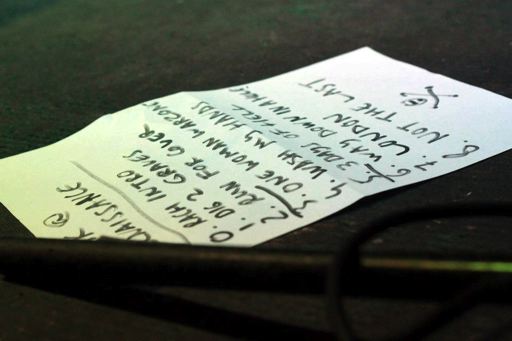 @
0. RACH INTRO
1. DIG 2 GRAVES
2. RUN FOR COVER
3. ONE WOMAN WARZONE
4. WASH MY HANDS
5. 3 DAYS OF HELL
6. WAY DOWN IN A HOLE
7. LONDON
8. NOT THE LAST